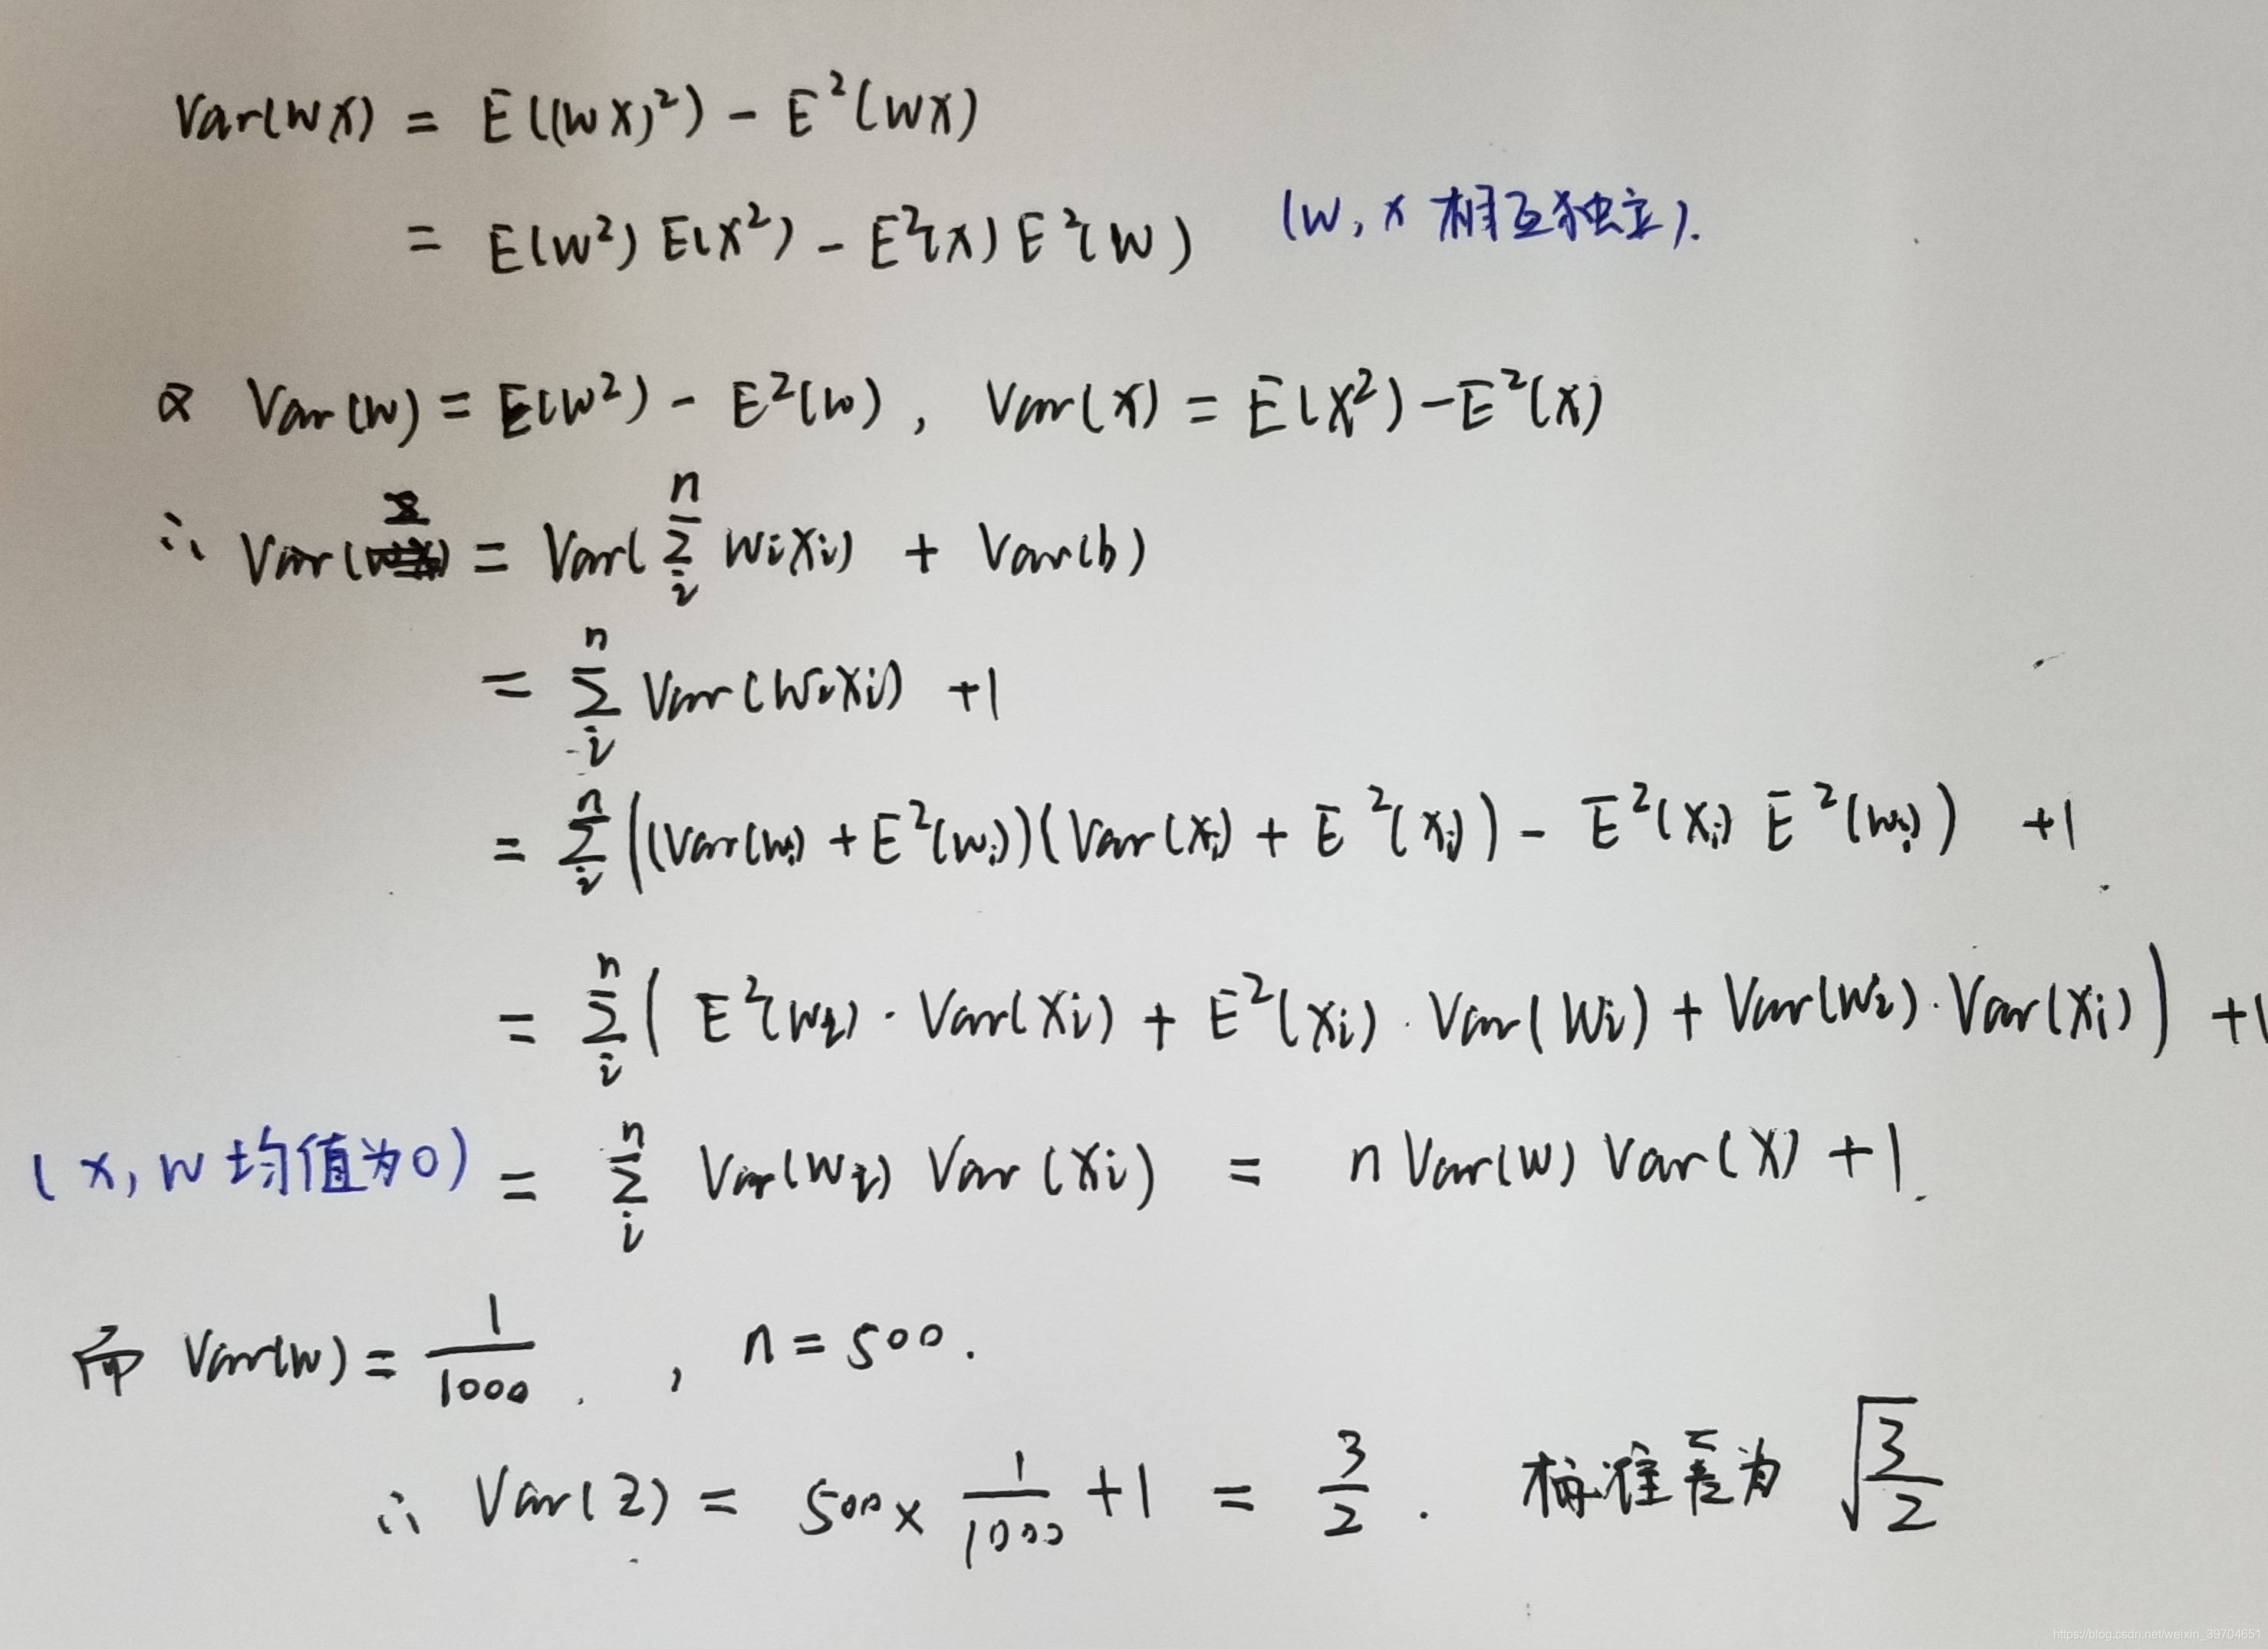 Var(wx) = E((wx)²) - E²(wx)
= E(w²) E(x²) - E²(x) E²(w) (w, x 相互独立).
又 Var(w) = E(w²) - E²(w), Var(x) = E(x²) - E²(x)
∴ Var(z) = Var(∑ᵢⁿ wᵢxᵢ) + Var(b)
= ∑ᵢⁿ Var(wᵢxᵢ) +1
= ∑ᵢⁿ ((Var(wᵢ) + E²(wᵢ))(Var(xᵢ) + E²(xᵢ)) - E²(xᵢ) E²(wᵢ)) +1
= ∑ᵢⁿ ( E²(wᵢ) · Var(xᵢ) + E²(xᵢ) · Var(wᵢ) + Var(wᵢ) · Var(xᵢ) ) +1
(x, w 均值为0) = ∑ᵢⁿ Var(wᵢ) Var(xᵢ) = n Var(w) Var(x) +1.
而 Var(w) = 1/1000 , n = 500.
∴ Var(z) = 500 × 1/1000 +1 = 3/2 . 标准差为 √(3/2)
https://blog.csdn.net/weixin_39704651